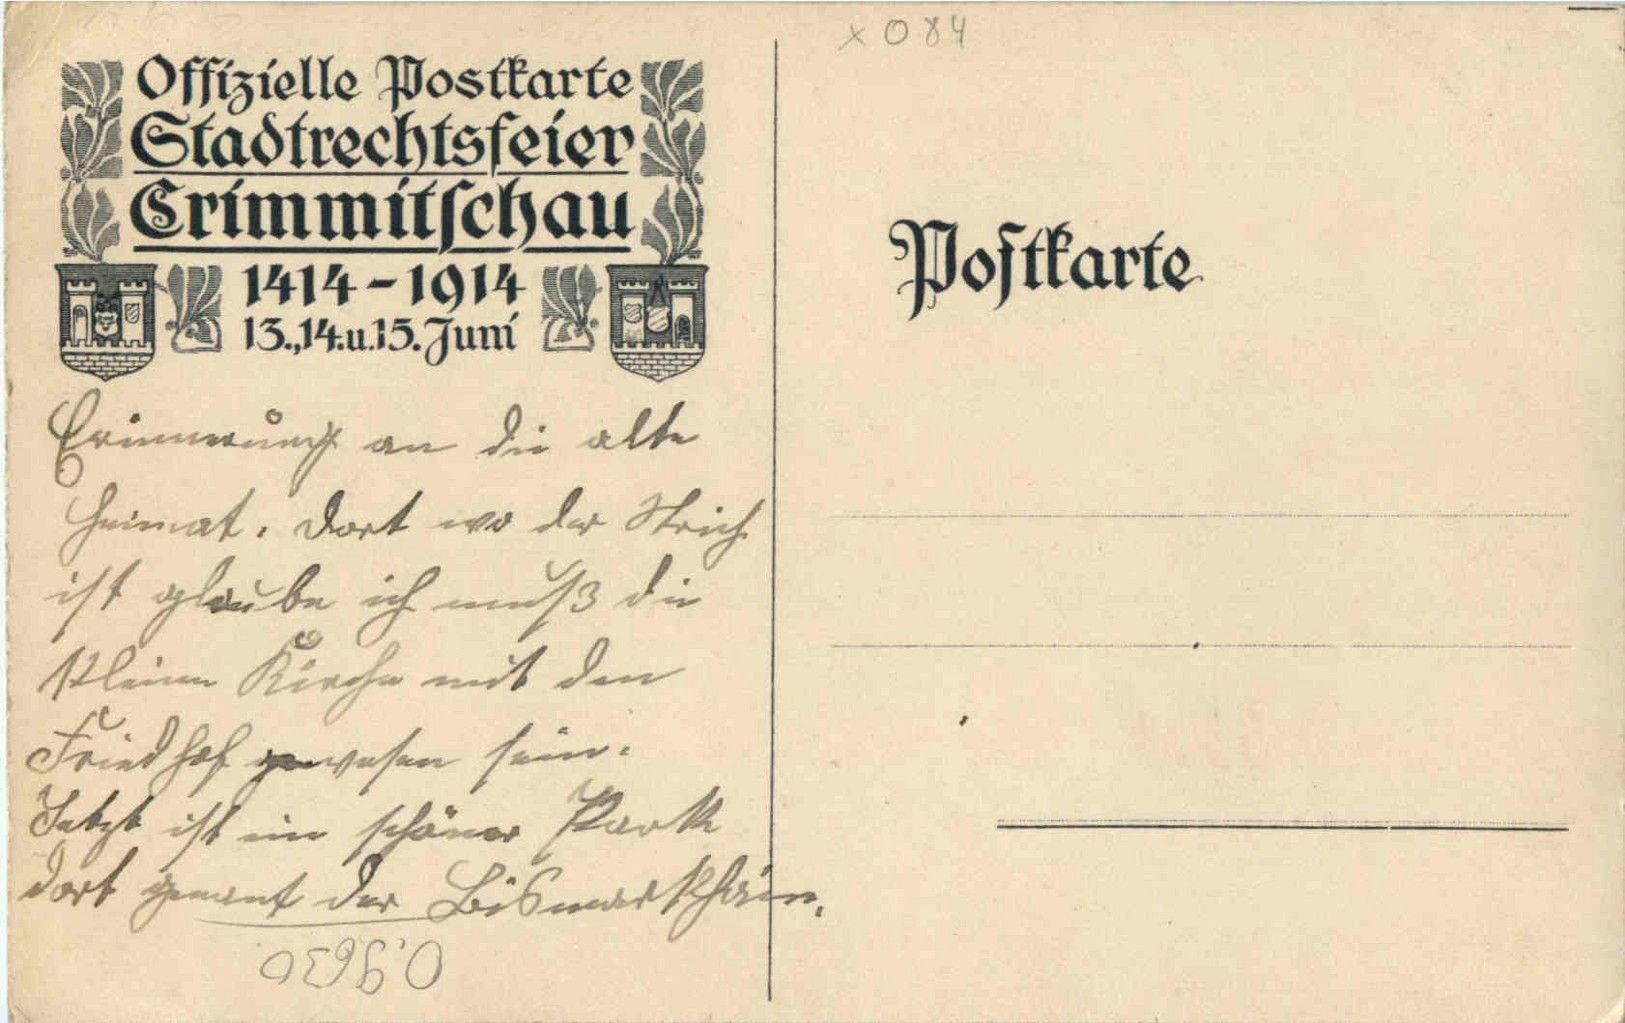 x 084
Offizielle Postkarte
Stadtrechtsfeier
Crimmitschau
1414-1914
13.,14.u.15. Juni
Postkarte
Erinnerung an die alte
Heimat. Dort wo der Strich
ist glaube ich muß die
Kleine Kirche mit den
Friedhof gewesen sein.
Jetzt ist ein schöner Park
dort genant der Bismarkhain.